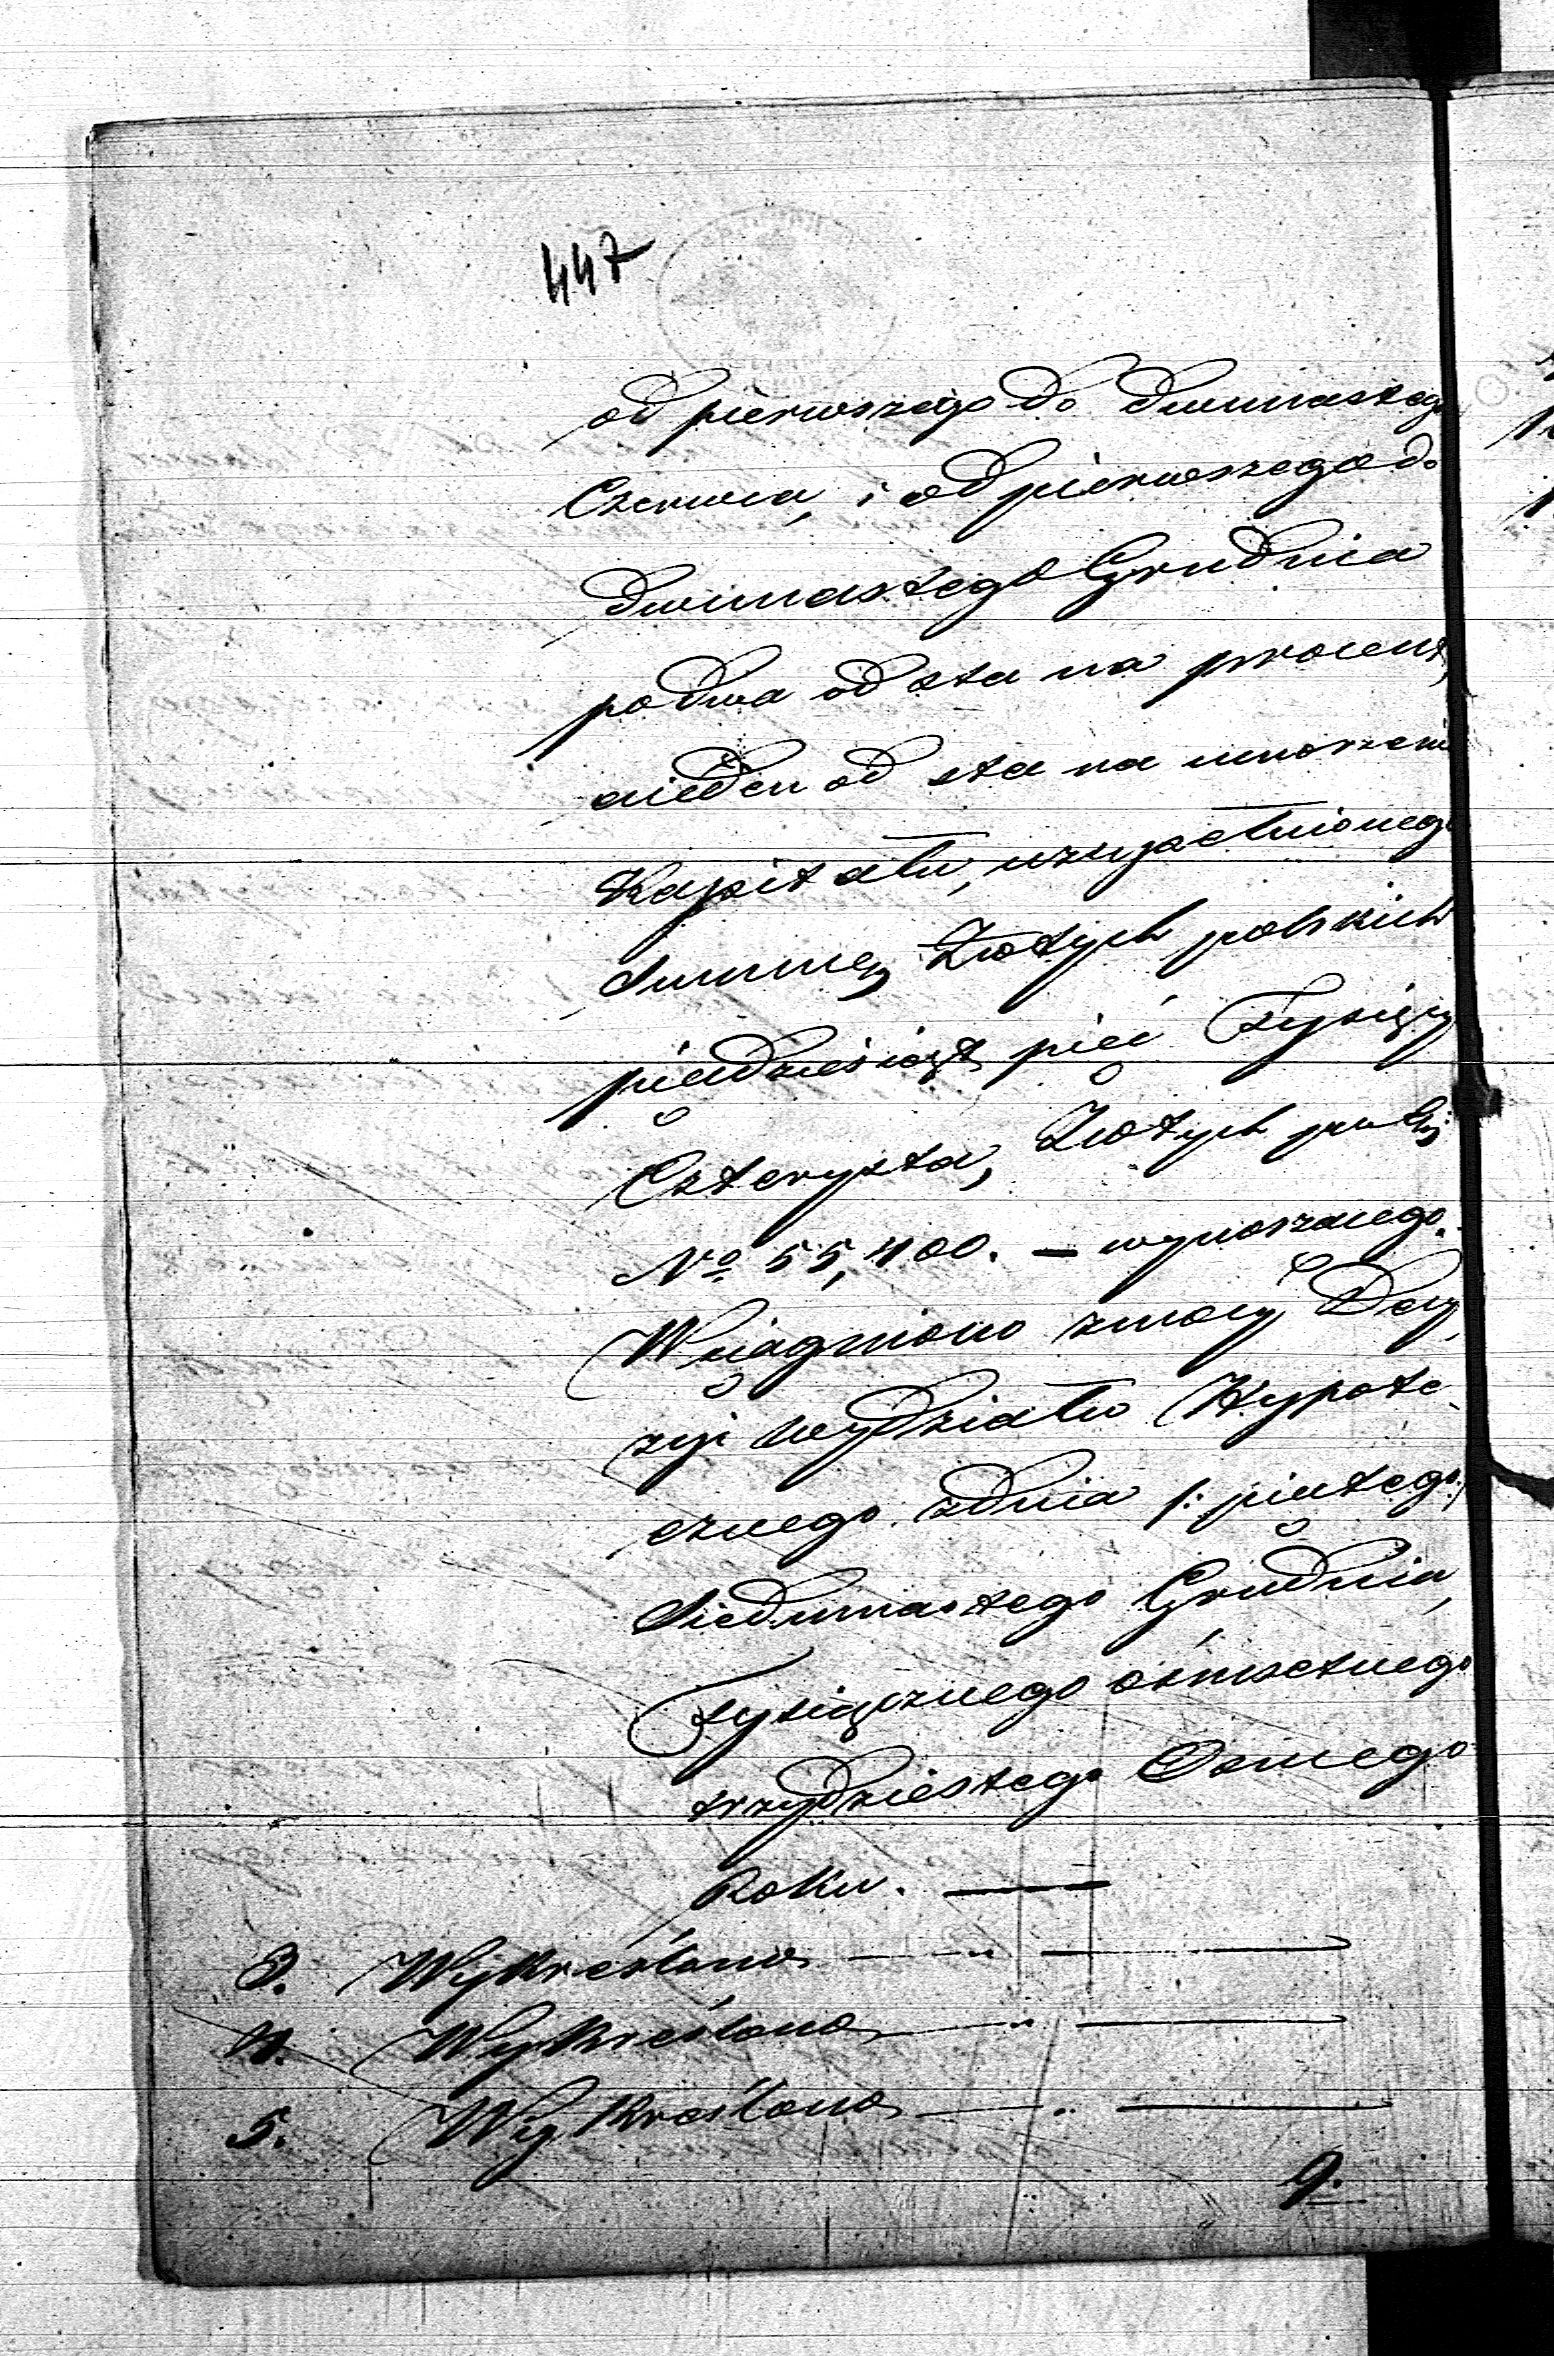 447
od pierwszego do dwunastego
Czerwca, i od pierwszego do
dwunastego Grudnia
po dwa od sta na procent,
a ieden od sta na umorzenie
Kapitału, uzupełnionego
Summę Złotych polskich
pięćdziesiąt pięć Tysięcy
Czterysta, Złotych
No 55,400. — wynoszącego.
Wciągniono z mocy Decy
zyi Wydziału Hypote
cznego z dnia /: piątego :/
Siedmnastego Grudnia,
Tysiącznego ośmsetnego
trzydziestego Osmego
Roku. —
3. Wykreślono — " —
4. Wykreślono — " —
5. Wykreślono — " —
9.